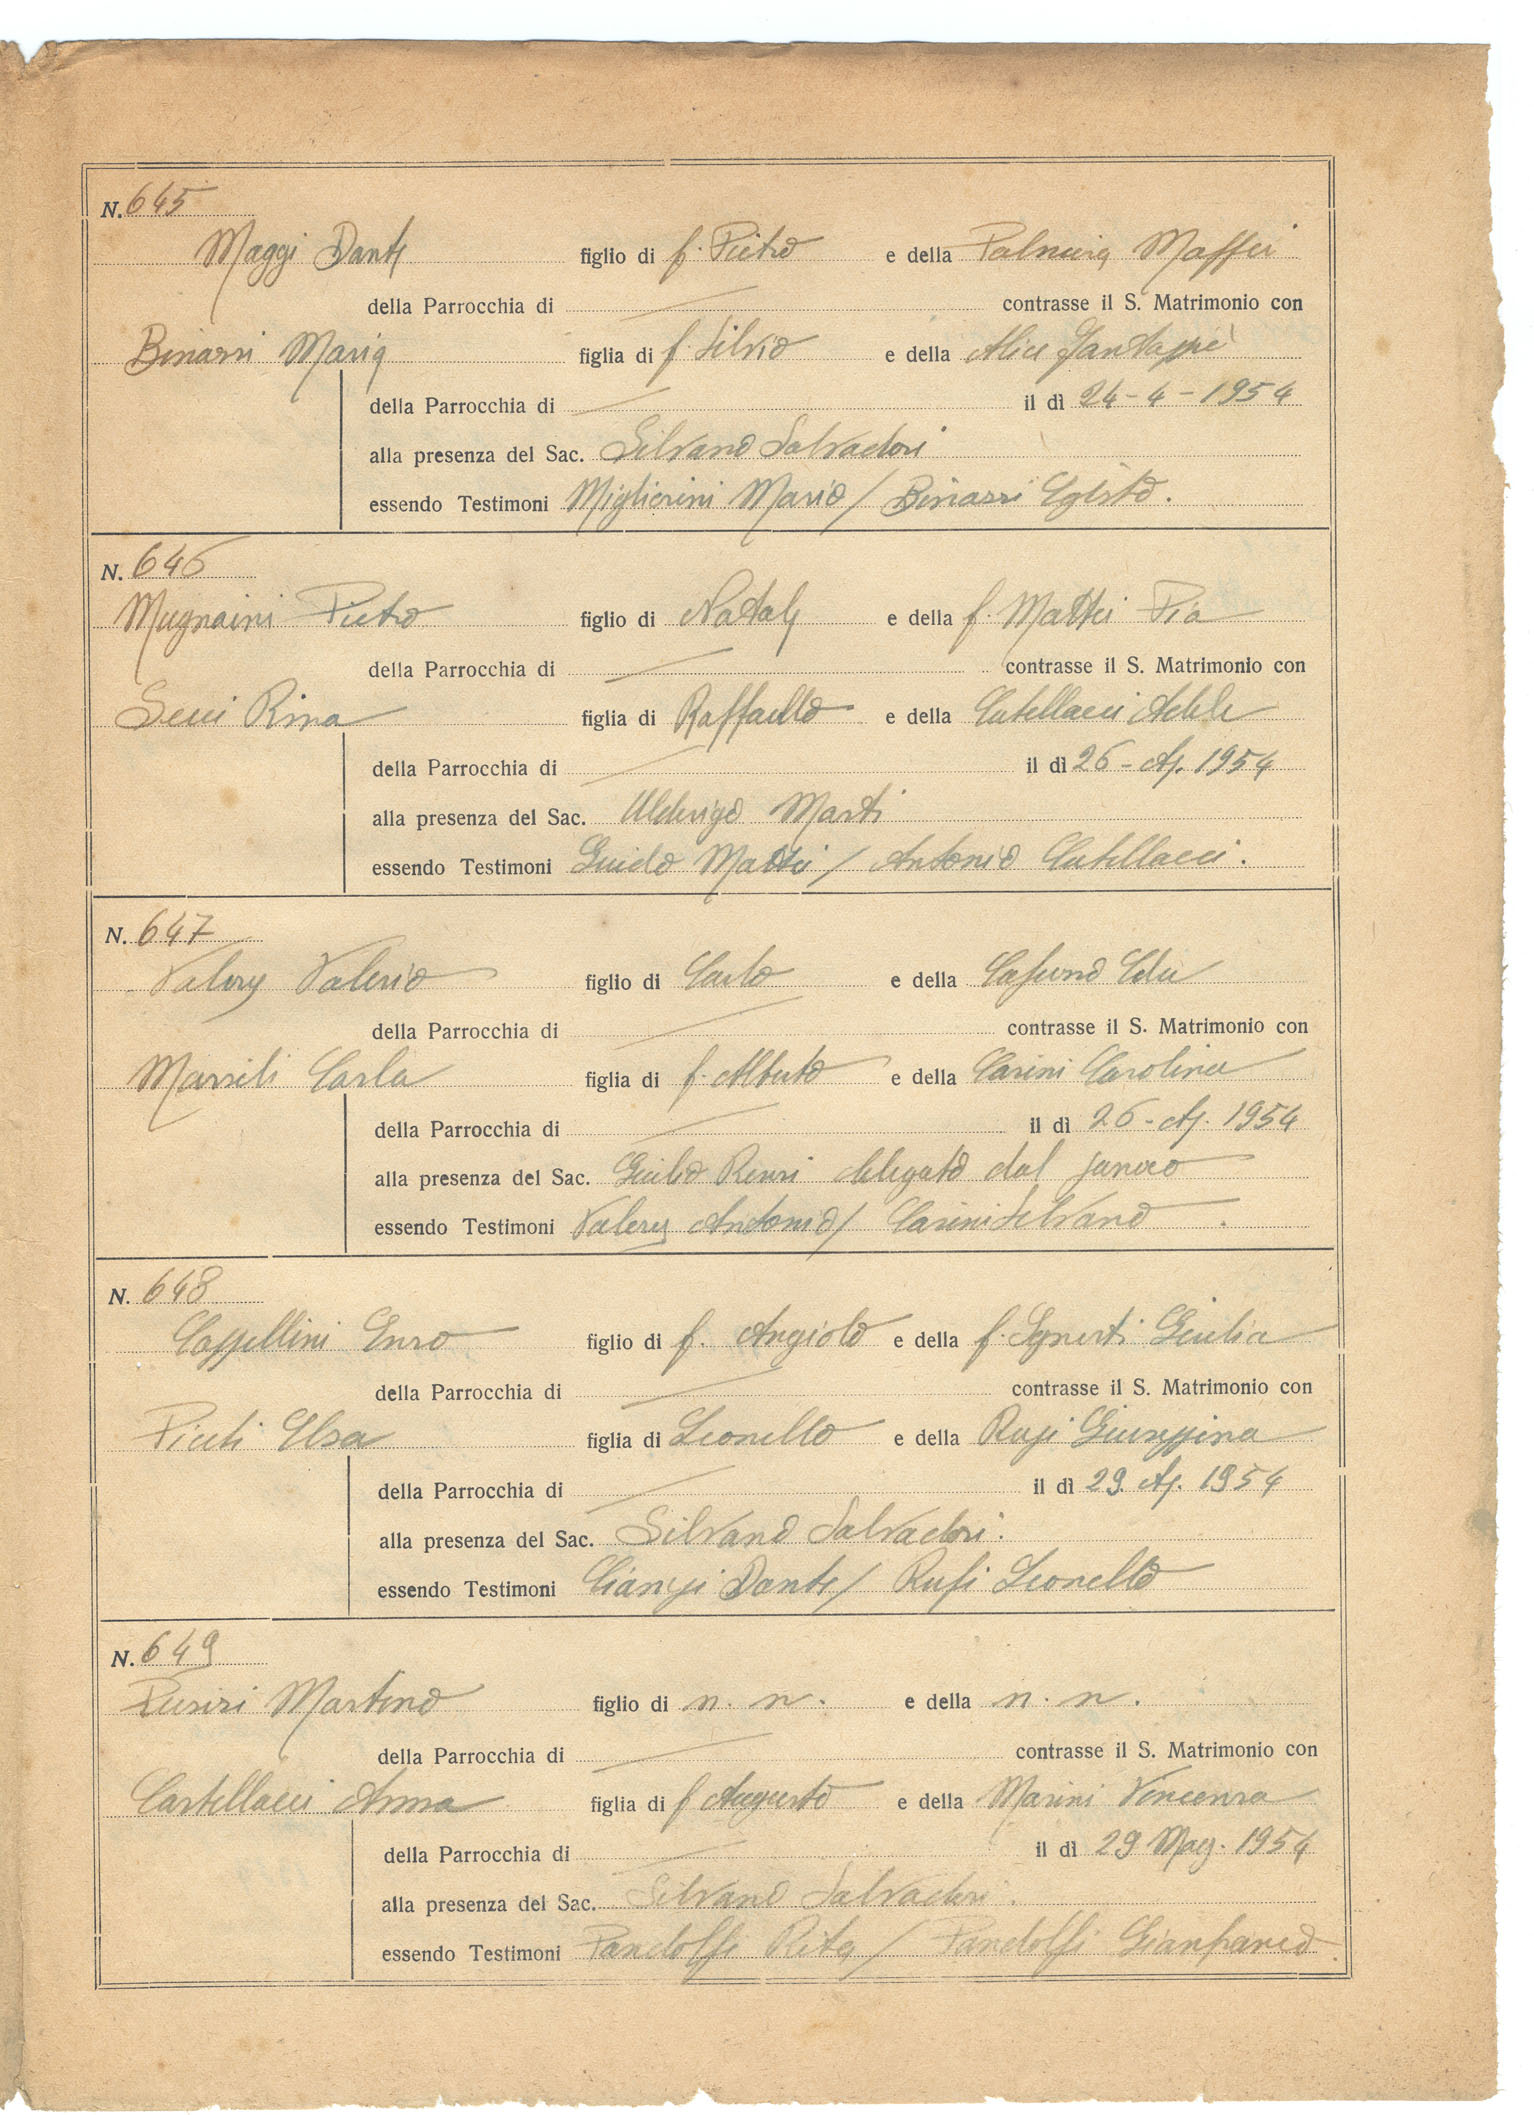 N. 645
Maggi Dante figlio di f. Pietro e della Palmira Maffei
della Parrocchia di contrasse il S. Matrimonio con
Binazzi Maria figlia di f. Silvio e della Alice
della Parrocchia di il dì 24-4-1954
alla presenza del Sac. Silvano Salvadori
essendo Testimoni Migliorini Mario / Binazzi Egisto.
N. 646
Mugnaini Pietro figlio di Natale e della f. Mattei Pia
della Parrocchia di contrasse il S. Matrimonio con
Rina figlia di Raffaello e della Catellacci Adele
della Parrocchia di il dì 26-Ap. 1954
alla presenza del Sac. Ulderigo Marti
essendo Testimoni Guido Mattei / Antonio Catellacci.
N. 647
Valery Valerio figlio di Carlo e della
della Parrocchia di contrasse il S. Matrimonio con
Marsili Carla figlia di f. Alberto e della Carini Carolina
della Parrocchia di il dì 26-Ap. 1954
alla presenza del Sac. Giulio Renzi delegato dal
essendo Testimoni Valery Antonio / Carini Silvano.
N. 648
Cappellini Enzo figlio di f. Angiolo e della f. Giulia
della Parrocchia di contrasse il S. Matrimonio con
Elsa figlia di Leonello e della Rufi Giuseppina
della Parrocchia di il dì 29. Ap. 1954
alla presenza del Sac. Silvano Salvadori.
essendo Testimoni Dante / Rufi Leonello
N. 649
Martino figlio di n. n. e della n. n.
della Parrocchia di contrasse il S. Matrimonio con
Castellacci Anna figlia di f Augusto e della Marini Vincenza
della Parrocchia di il dì 29 Mag. 1954
alla presenza del Sac. Silvano Salvadori.
essendo Testimoni Pandolfi Rita / Pandolfi Gianfranco.